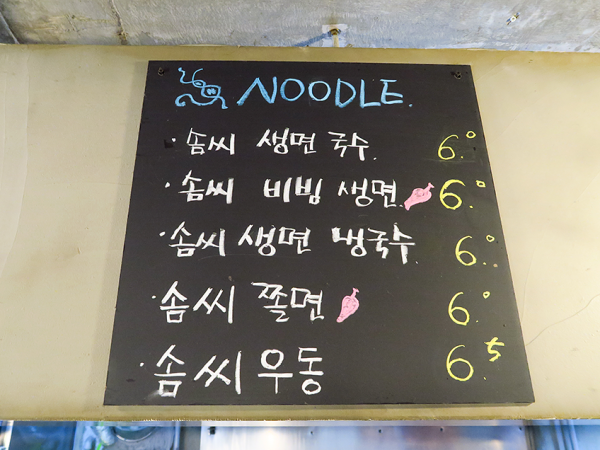 NOODLE.
· 솜씨 생면 국수. 6.0
· 솜씨 비빔 생면. 6.0
· 솜씨 생면 냉국수. 6.0
· 솜씨 쫄면 6.0
· 솜씨 우동 6.5